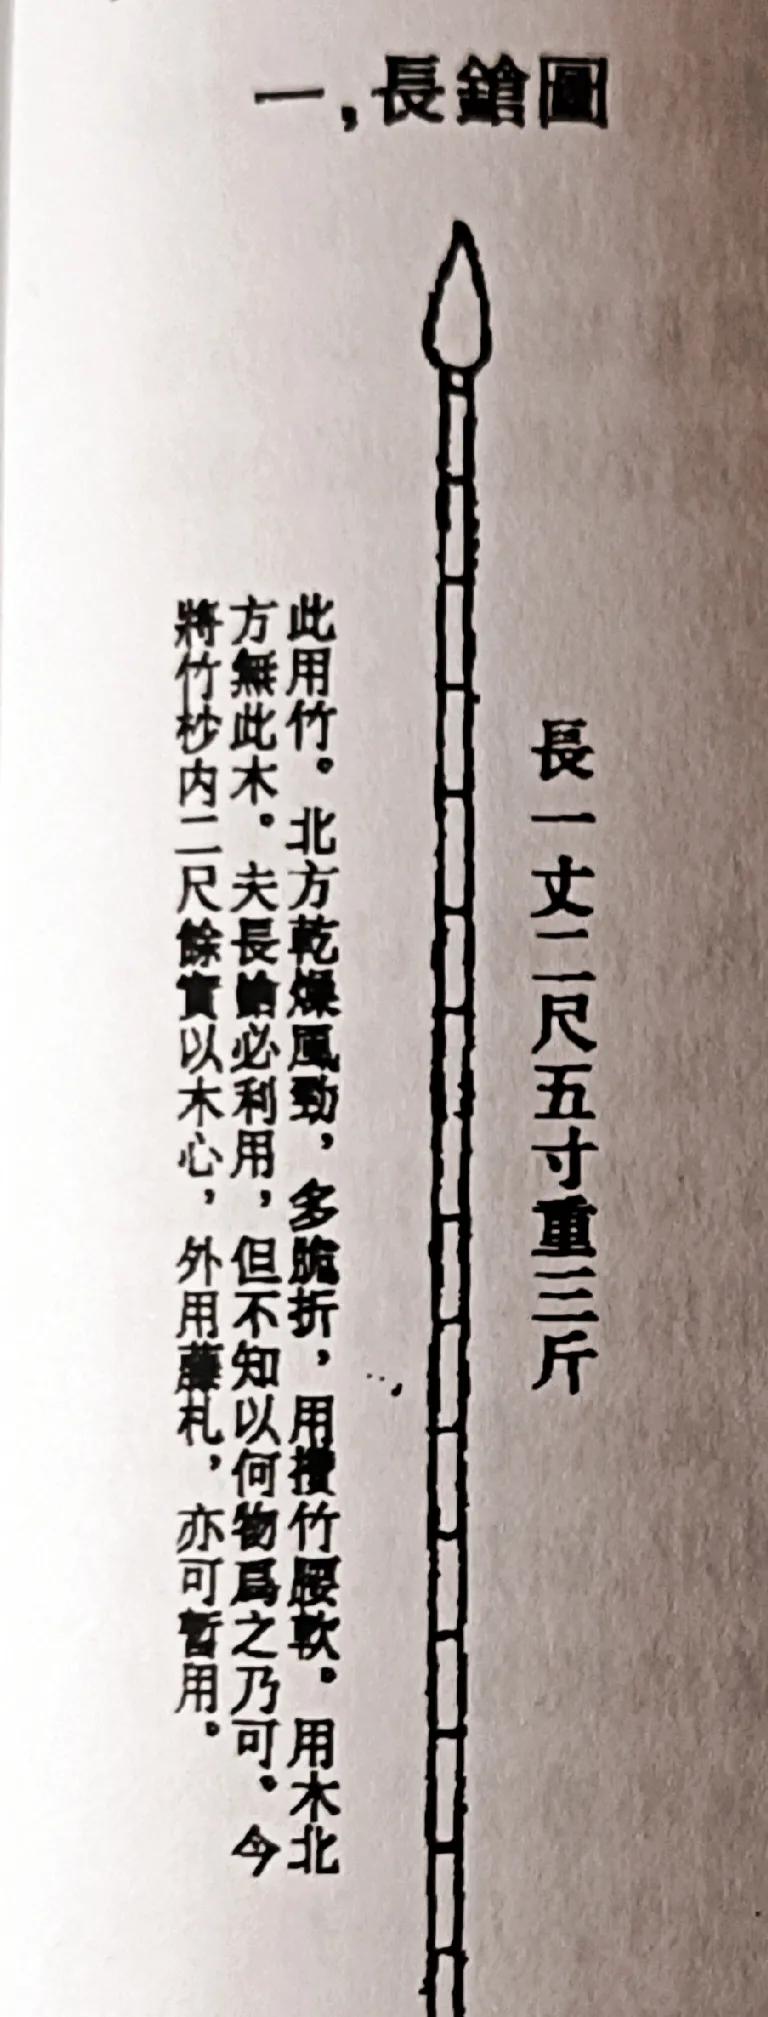 一,長鎗圖
長一丈二尺五寸重三斤
此用竹。北方乾燥風勁,多脆折,用攢竹腰軟。用木北
方無此木。夫長鎗必利用,但不知以何物爲之乃可。今
將竹杪内二尺餘實以木心,外用藤札,亦可暫用。